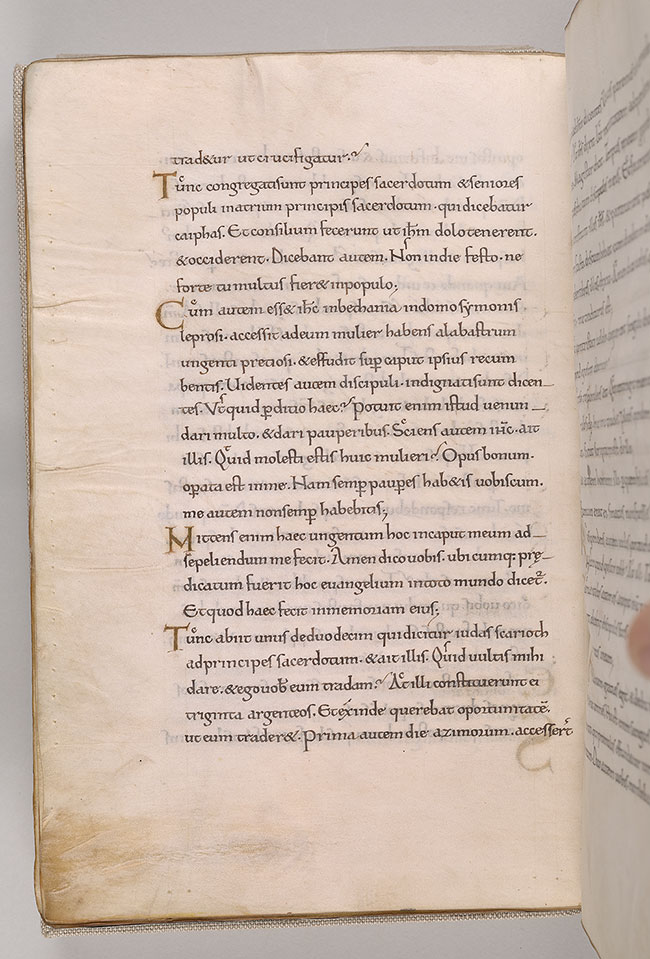 trad&ur ut crucifigatur.
Tunc congregati sunt principes sacerdotum &seniores
populi in atrium principis sacerdotum. qui dicebatur
caiphas. Et consilium fecerunt ut ihm dolo tenerent.
&occiderent. Dicebant autem. Non in die festo. ne
forte tumultus fier& in populo;
Cum autem ess& ihc in bethania in domo symonis
leprosi. accessit ad eum mulier habens alabastrum
ungenti preciosi. &effudit sup caput ipsius recum
bentis. Uidentes autem discipuli. indignati sunt dicen
tes. Vt quid pditio haec? Potuit enim istud uenun
dari multo. &dari pauperibus. Sciens autem ihc. ait
illis. Quid molesti estis huic mulieri? Opus bonum.
opata est in me. Nam semp paupes hab&is uobiscum.
me autem non semp habebitis;
Mittens enim haec ungentum hoc in caput meum ad
sepeliendum me fecit. Amen dico uobis. ubicumq: prę
dicatum fuerit hoc euangelium in toto mundo dicet.
Et quod haec fecit in memoriam eius;
Tunc abiit unus de duodecim qui dicitur iudas scarioth
ad principes sacerdotum. &ait illis. Quid uultis mihi
dare. &ego uob eum tradam? At illi constituerunt ei
triginta argenteos. Et exinde querebat oportunitatē.
ut eum trader&. Prima autem die azimorum. accessert